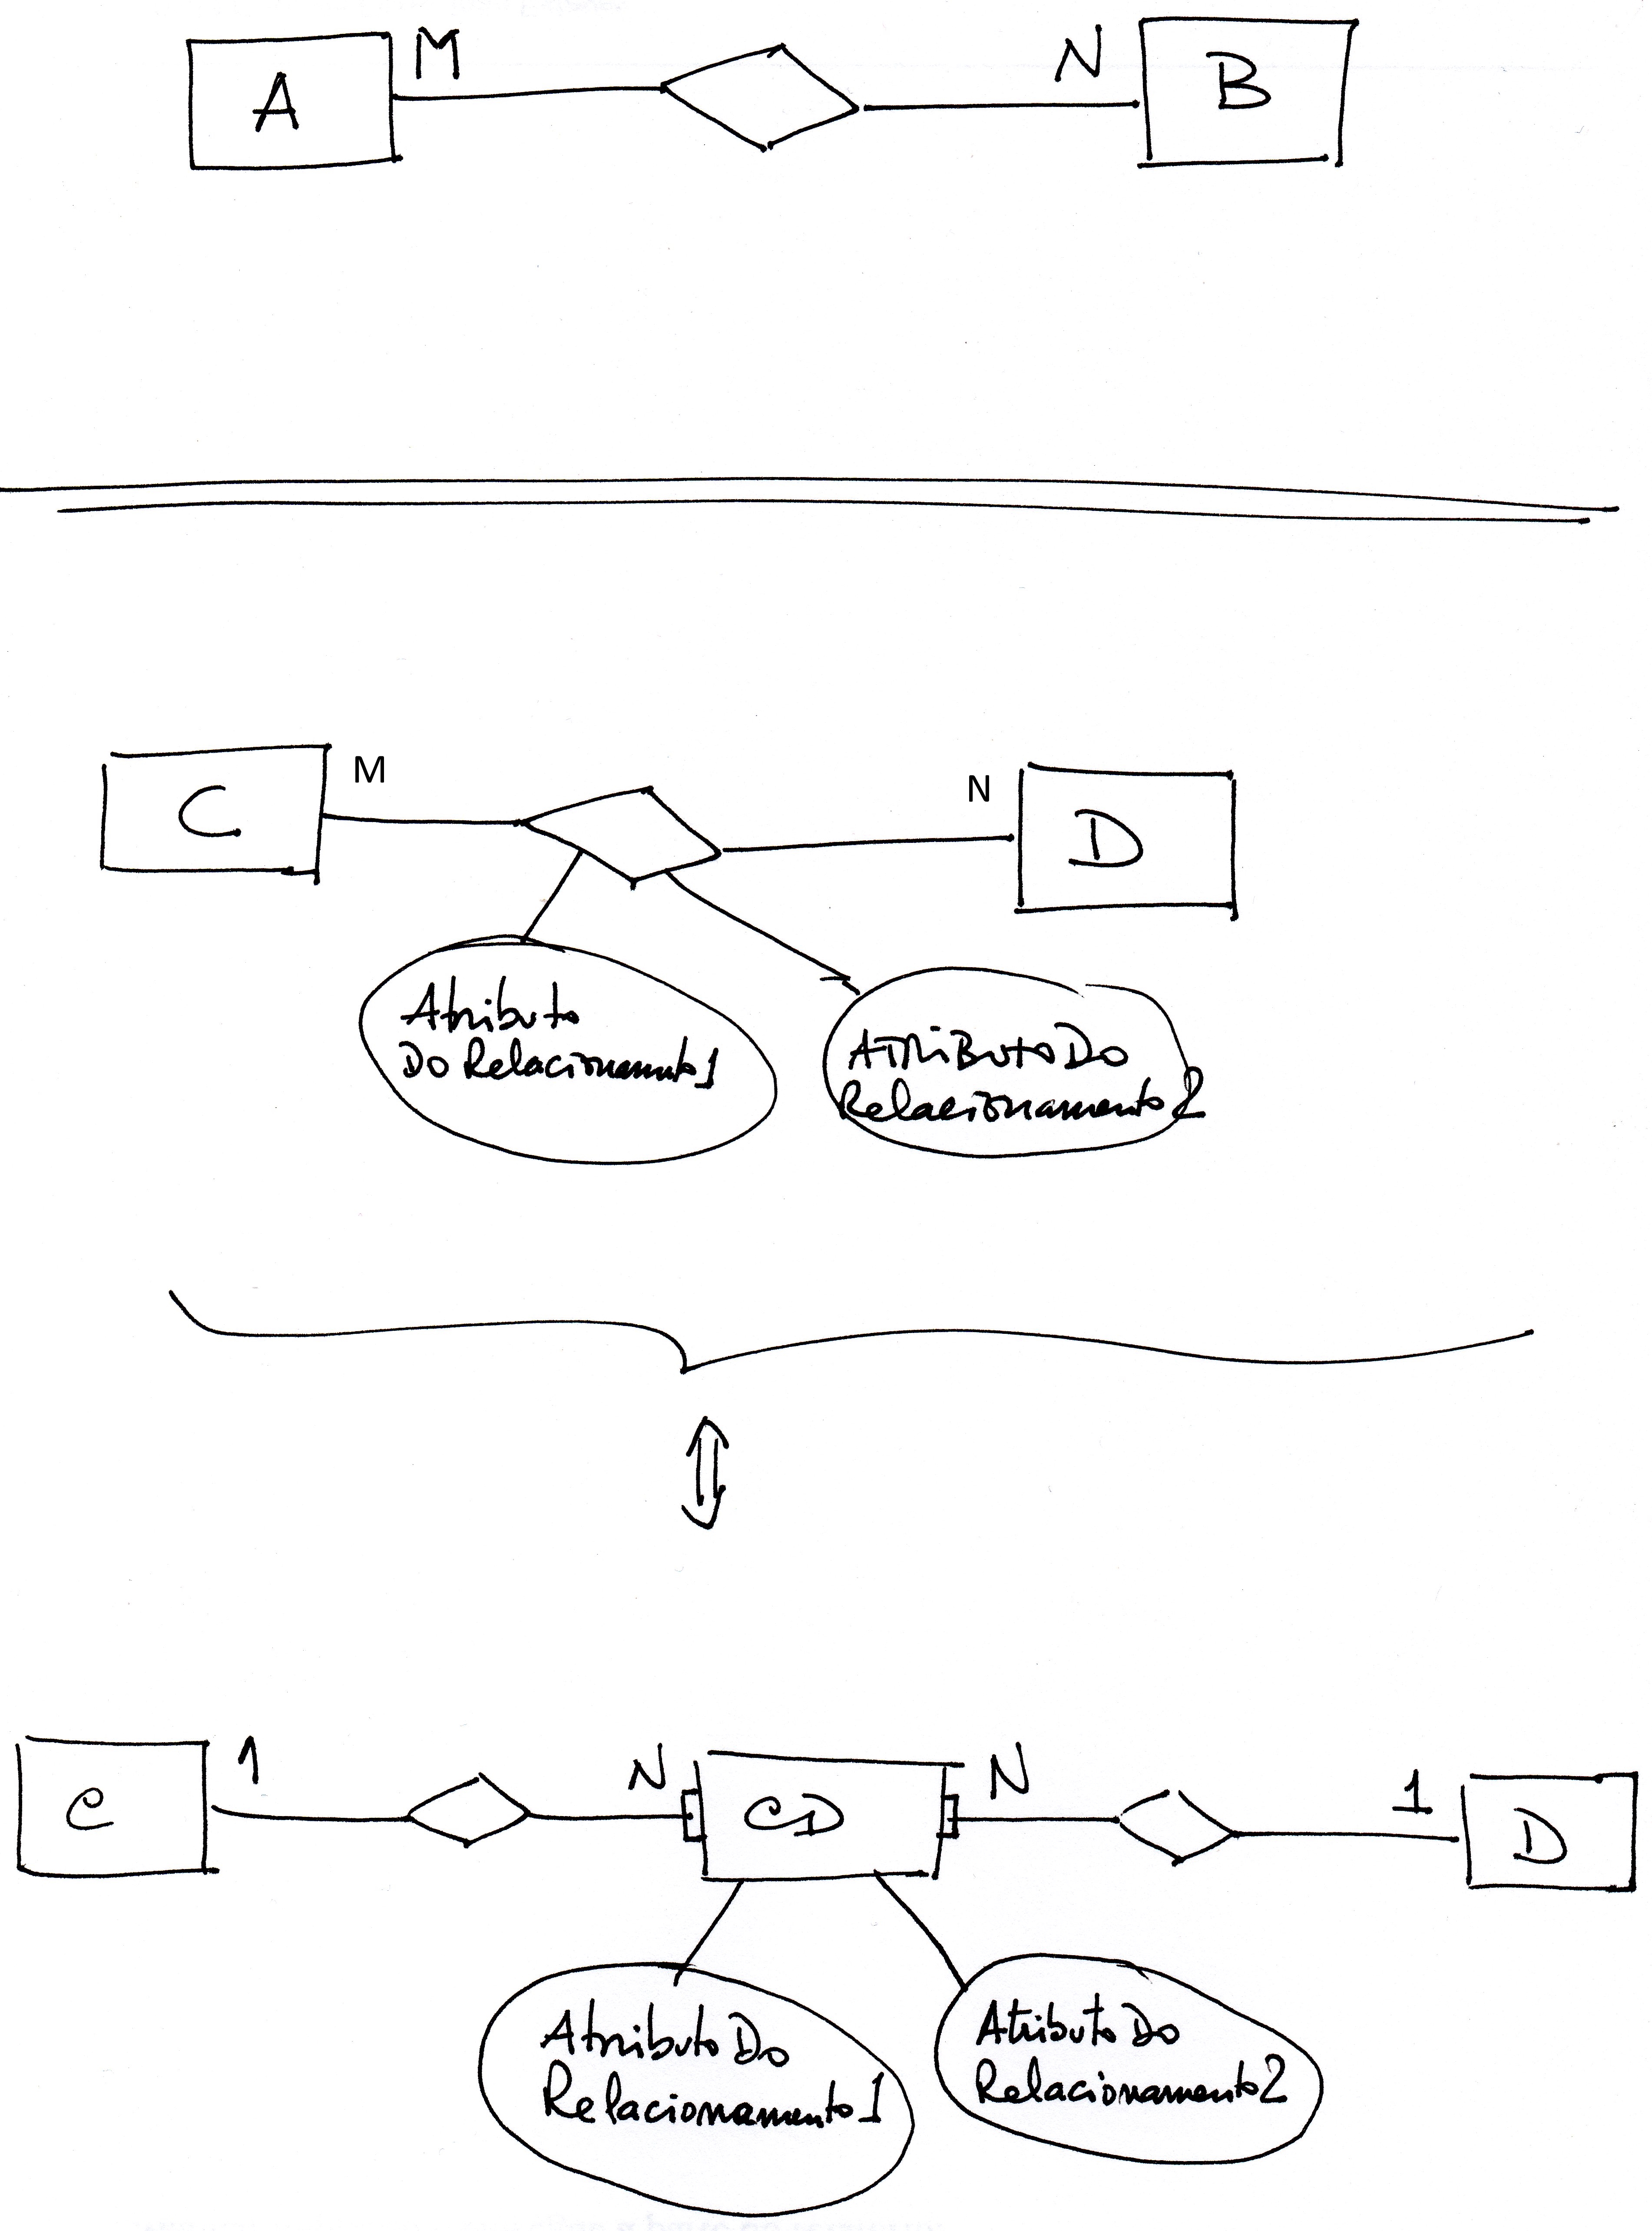 A
M
N
B
C
M
N
D
Atributo
Do Relacionamento1
AtRiButo Do
Relacionamento2
C
1
N
CD
N
1
D
Atributo Do
Relacionamento1
Atributo Do
Relacionamento2